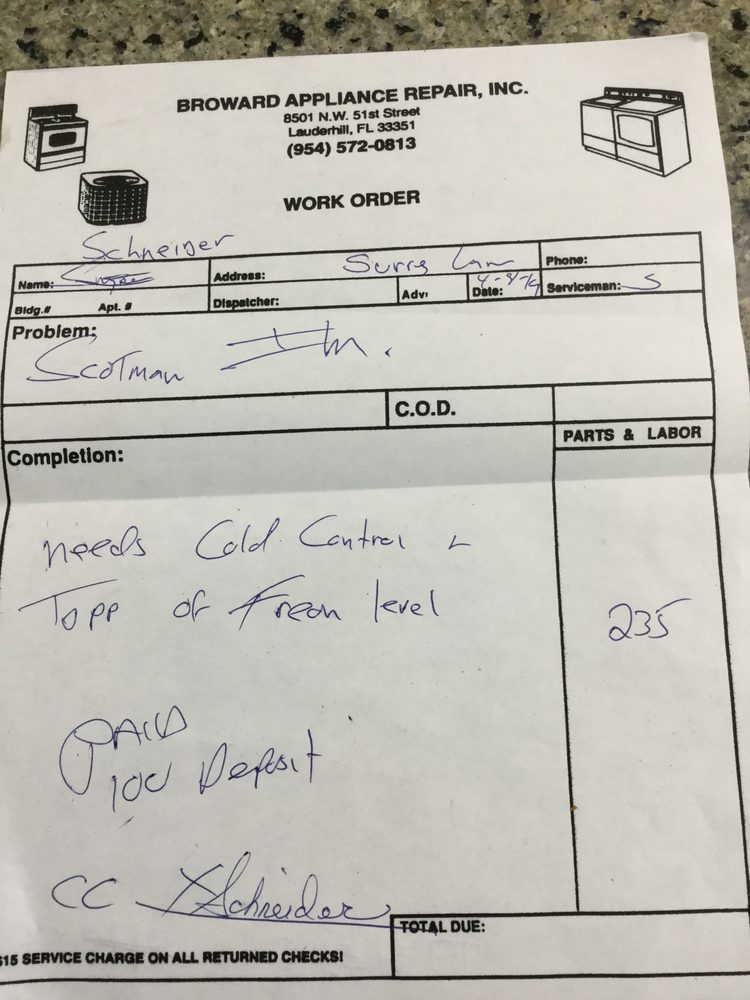 BROWARD APPLIANCE REPAIR, INC.
8501 N.W. 51st Street
Lauderhill, FL 33351
(954) 572-0813
WORK ORDER
Schneider
Name:
Address:
Phone:
Bldg.# Apt. #
Dispatcher:
Adv:
Date:
Serviceman: S
Problem:
Scotman Im.
C.O.D.
PARTS & LABOR
Completion:
needs Cold Control
Topp of Freon level
235
PAID
100 Deposit
CC X Schneider
TOTAL DUE:
$15 SERVICE CHARGE ON ALL RETURNED CHECKS!